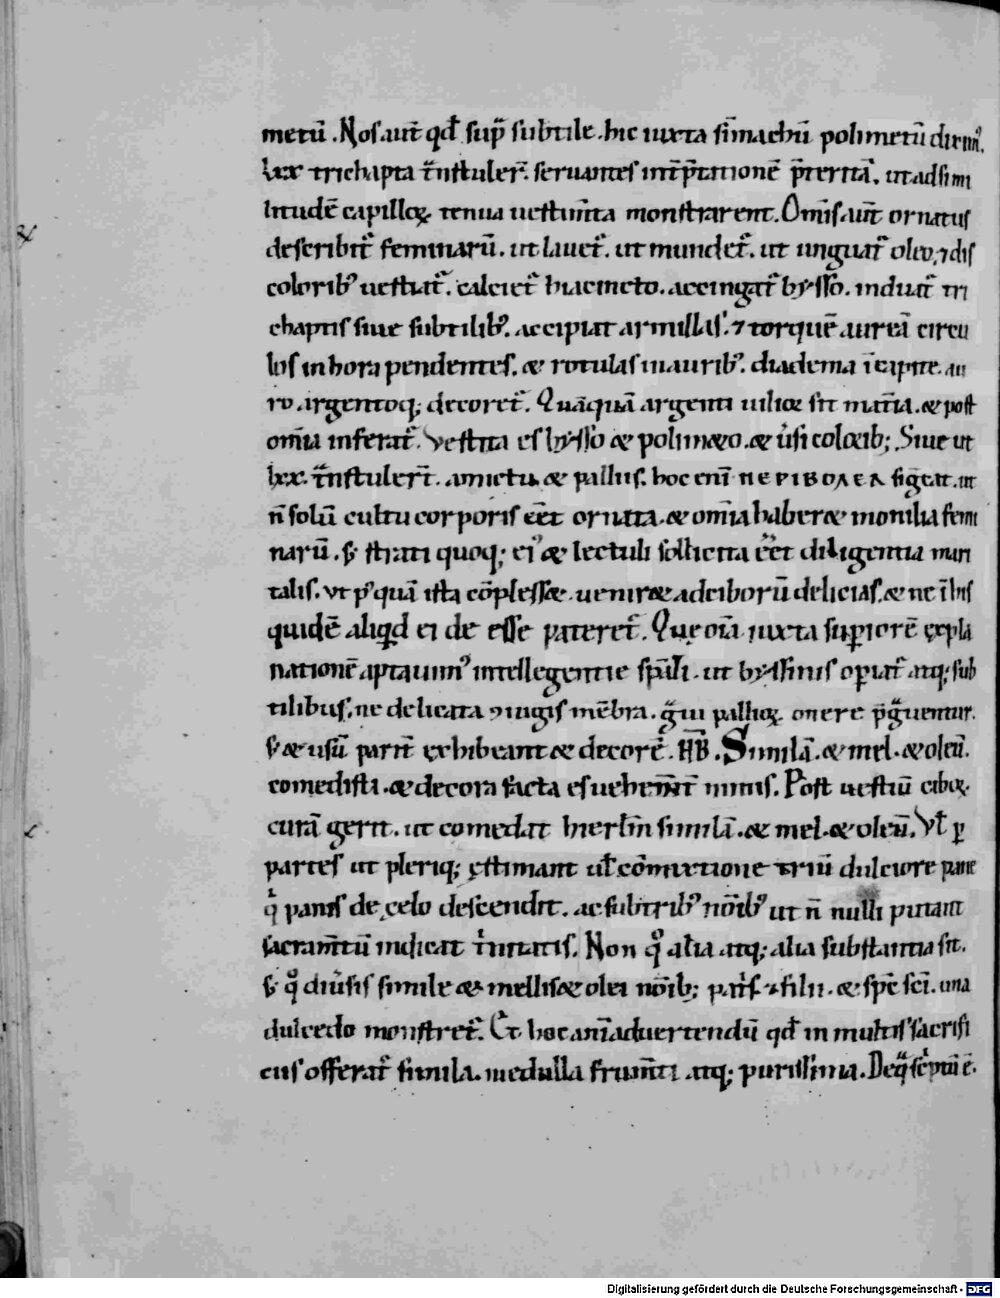 metū. Nos aut̄ qd̄ sup̄ subtile. hic iuxta sīmachū polimetū diximꝰ.
lxx trichapta t̄nstuler̄. seruantes int̄p̄tationē p̄teritā. ut adsimi
litudē capilloꝝ tenua uestim̄ta monstrarent. Om̄is aut̄ ornatus
describit̄ feminarū. ut lauet̄. ut mundet̄. ut unguat̄ oleo. ⁊ dis
coloribꝰ uestiat̄. calciet̄ hiacincto. accingat̄ bysso. induat̄ tri
chaptis siue subtilibꝰ. accipiat armillas. ⁊ torquē aureā circu
los in hora pendentes. & rotulas in auribꝰ. diadema ī capite. au
ro argentoq; decoret̄. Quāquā argenti uilior sit mat̄ia. & post
om̄ia inferat̄. Vestita es bysso & polimeto. & u̓sicoloribꝫ; Siue ut
lxx. t̄nstuler̄t. amictu & palliis. hoc enī ΠΕΡΙΒΟΛΕΑ sig̅cat. ut
n̄ solū cultu corporis eēt ornata. & om̄ia haberet monilia femi
narū. sꝫ strati quoq; eiꝰ & lectuli sollicita eēt diligentia mari
talis. Vt pꝰquā ista cōplesset. ueniret ad ciborū delicias. & ne ī his
quidē aliqd̄ ei de esse pateret̄. Que om̄ia iuxta supiorē expla
nationē aptauimꝰ intellegentie sp̄ali. ut byssinis opiat̄ atq; sub
tilibus. ne delicata ꝯiugis mēbra. g̅ui pallioꝝ onere p̄g̅uentur.
sꝫ & usū parit̄ exhibeant & decorē. HB. Similā. & mel. & oleū.
comedisti. & decora facta es uehem̄t̄ nimis. Post uestiū ciboꝝ
curā gerit. ut comedat hierl̄m similā. & mel. & oleū. Vl̄ p
partes ut pleriq; estimant ul̄ cōmixtione triū dulciore pane
q̄ panis de celo descendit. ac sub tribꝰ noībꝰ ut n̄ nulli putant
sacram̄tū indicat t̄nitatis. Non qͦ alia atq; alia substantia sit.
sꝫ qͦ diu̓sis simile & mellis & olei noībꝫ; patris ⁊ filii. & sp̄s sc̄i. una
dulcedo monstret̄. Et hoc anīaduertendū qd̄ in multis sacrifi
ciis offerat̄ simila. medulla frum̄ti atq; purissima.